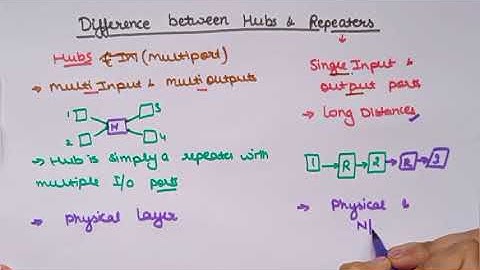 Difference between Hubs & Repeaters
Hubs (multiport)
→ Multi Input & multi outputs
1 3
H
2 4
→ Hub is simply a repeater with
multiple I/o ports
→ Physical layer
Single Input &
output ports
→ Long Distances
1 → R → 2 → R → 3
→ Physical &
N